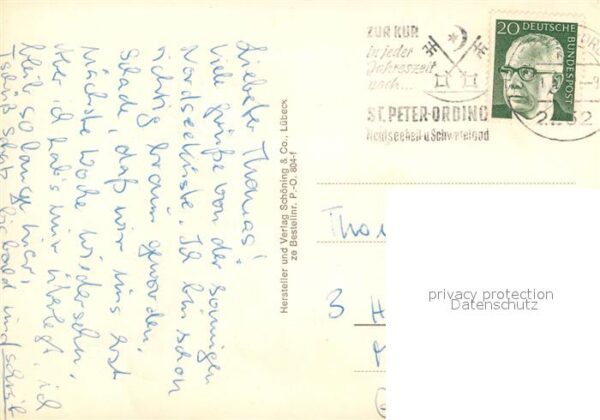 Liebster Thomas!
Viele Grüße von der sonnigen
Nordseeküste. Ich bin schon
richtig braun geworden.
Schade daß wir uns erst
nächste Woche wiedersehn.
Aber ich hab's mir überlegt, ich
bleib so lange hier,
Tschüß bis bald und schreib
Hersteller und Verlag Schöning & Co., Lübeck
ze Bestellnr. P.-O. 804-f
ZUR KUR
in jeder
Jahreszeit
nach...
ST. PETER-ORDING
Nordseeheil- u Schwefelbad
20 DEUTSCHE
BUNDESPOST
Tho
3 H
privacy protection
Datenschutz